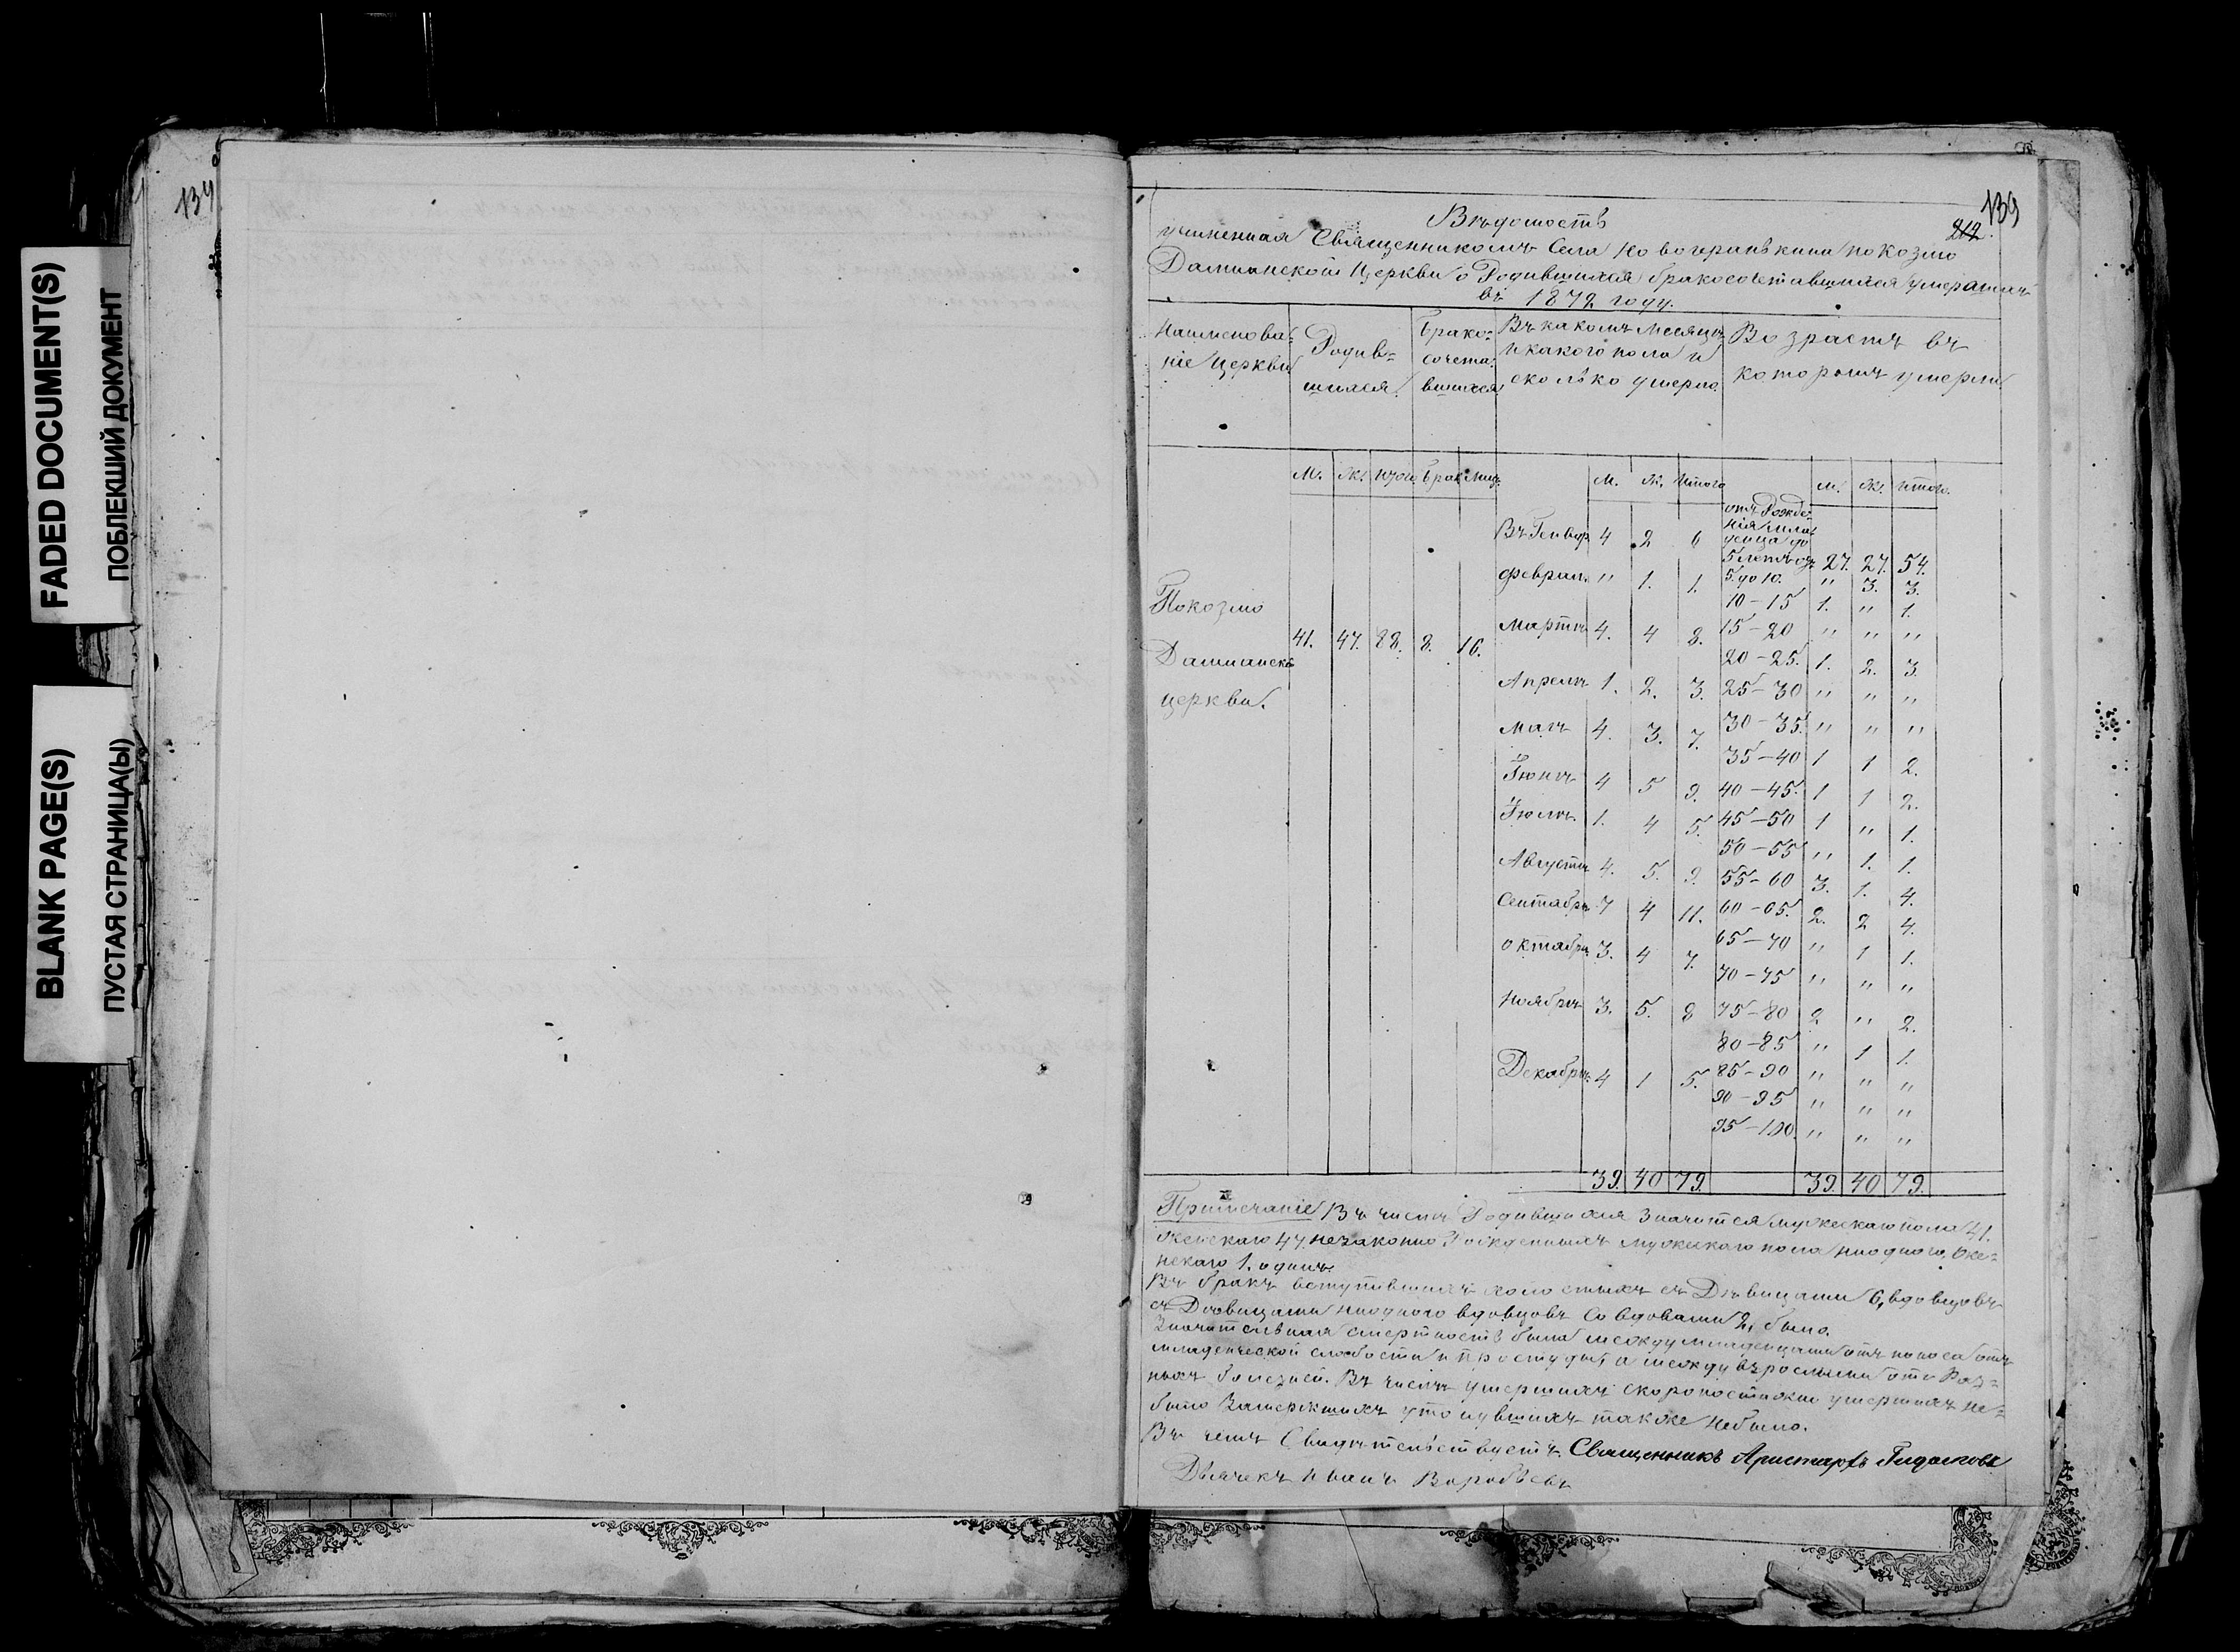 FADED DOCUMENT(S)
ПОБЛЕКШИЙ ДОКУМЕНТ
BLANK PAGE(S)
ПУСТАЯ СТРАНИЦА(Ы)
134
139
212.
Вѣдомость
учиненная Священникомъ Села покозмо
Дамианской Церкви о Родившихся бракосочетавшихся умершихъ
въ 1872 году.
Наименова= Родив= Брако= Въ какомъ месяцѣ Возрастъ въ
ніе Церкви шихся. сочета= и какого пола и которомъ умерли
вшихся сколько умерло.
М. Ж. Итого Брак. Лиц. М. Ж. Итого М. Ж. Итого.
отъ Рожде
нія мла
денца до
Въ Генвар 4 2 6 5 летъ 27. 27. 54.
Феврал. " 1. 1. 5 до 10. " 3. 3.
Покозмо 10-15 1. " 1.
Мартъ 4. 4 8. 15-20 " " "
41. 47. 88. 8. 16.
Дамианск 20-25. 1. 2. 3.
Апрелъ 1. 2. 3. 25-30 " " "
церкви.
Маъ 4. 3. 7. 30-35. " " "
35-40 1 1 2.
Іюнъ 4 5 9. 40-45. 1 1 2.
Іюлъ. 1. 4 5. 45-50 1 " 1.
50-55 " 1. 1.
Августъ 4. 5. 9. 55-60 3. 1. 4.
Сентабръ 7 4 11. 60-65. 2. 2 4.
октабръ 3. 4 7. 65-70 " 1 1.
70-75 " " "
Ноябръ 3. 5. 8 75-80 2 " 2.
80-85 " 1 1.
Декабръ. 4 1 5. 85-90 " " "
90-95 " " "
95-100. " " "
39. 40 79. 39. 40 79.
Примечаніе Въ числѣ Родившихся Значится мужескаго пола 41.
женскаго 47. незаконно Рожденныхъ мужескаго пола ниодного, же=
нскаго 1. одинъ.
Въ бракъ вступившихъ холостыхъ съ Дѣвицами 6, вдовцовъ
съ Дѣвицами ниодного вдовцовъ со вдовами 2, было.
Значительная смертность была между младенцами отъ поноса отъ
младенческой слабости и простуды, а между взрослыми отъ Раз=
ныхъ болезней. Въ числѣ умершихъ скоропостижно умершихъ не=
было Замерзшихъ утонувшихъ также небыло.
Въ чемъ Свидѣтельствуетъ. Священникъ Аристархъ
Дьячекъ Иванъ Воробьевъ